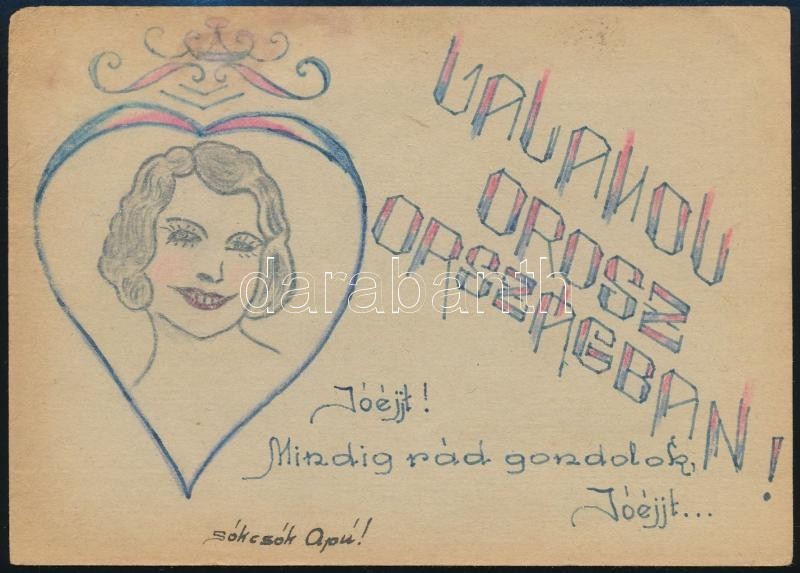 VALAHOL
OROSZ
ORSZÁGBAN!
Jóéjjt!
Mindig rád gondolok,
Jóéjjt...
sókcsók Apú!
darabanth.com